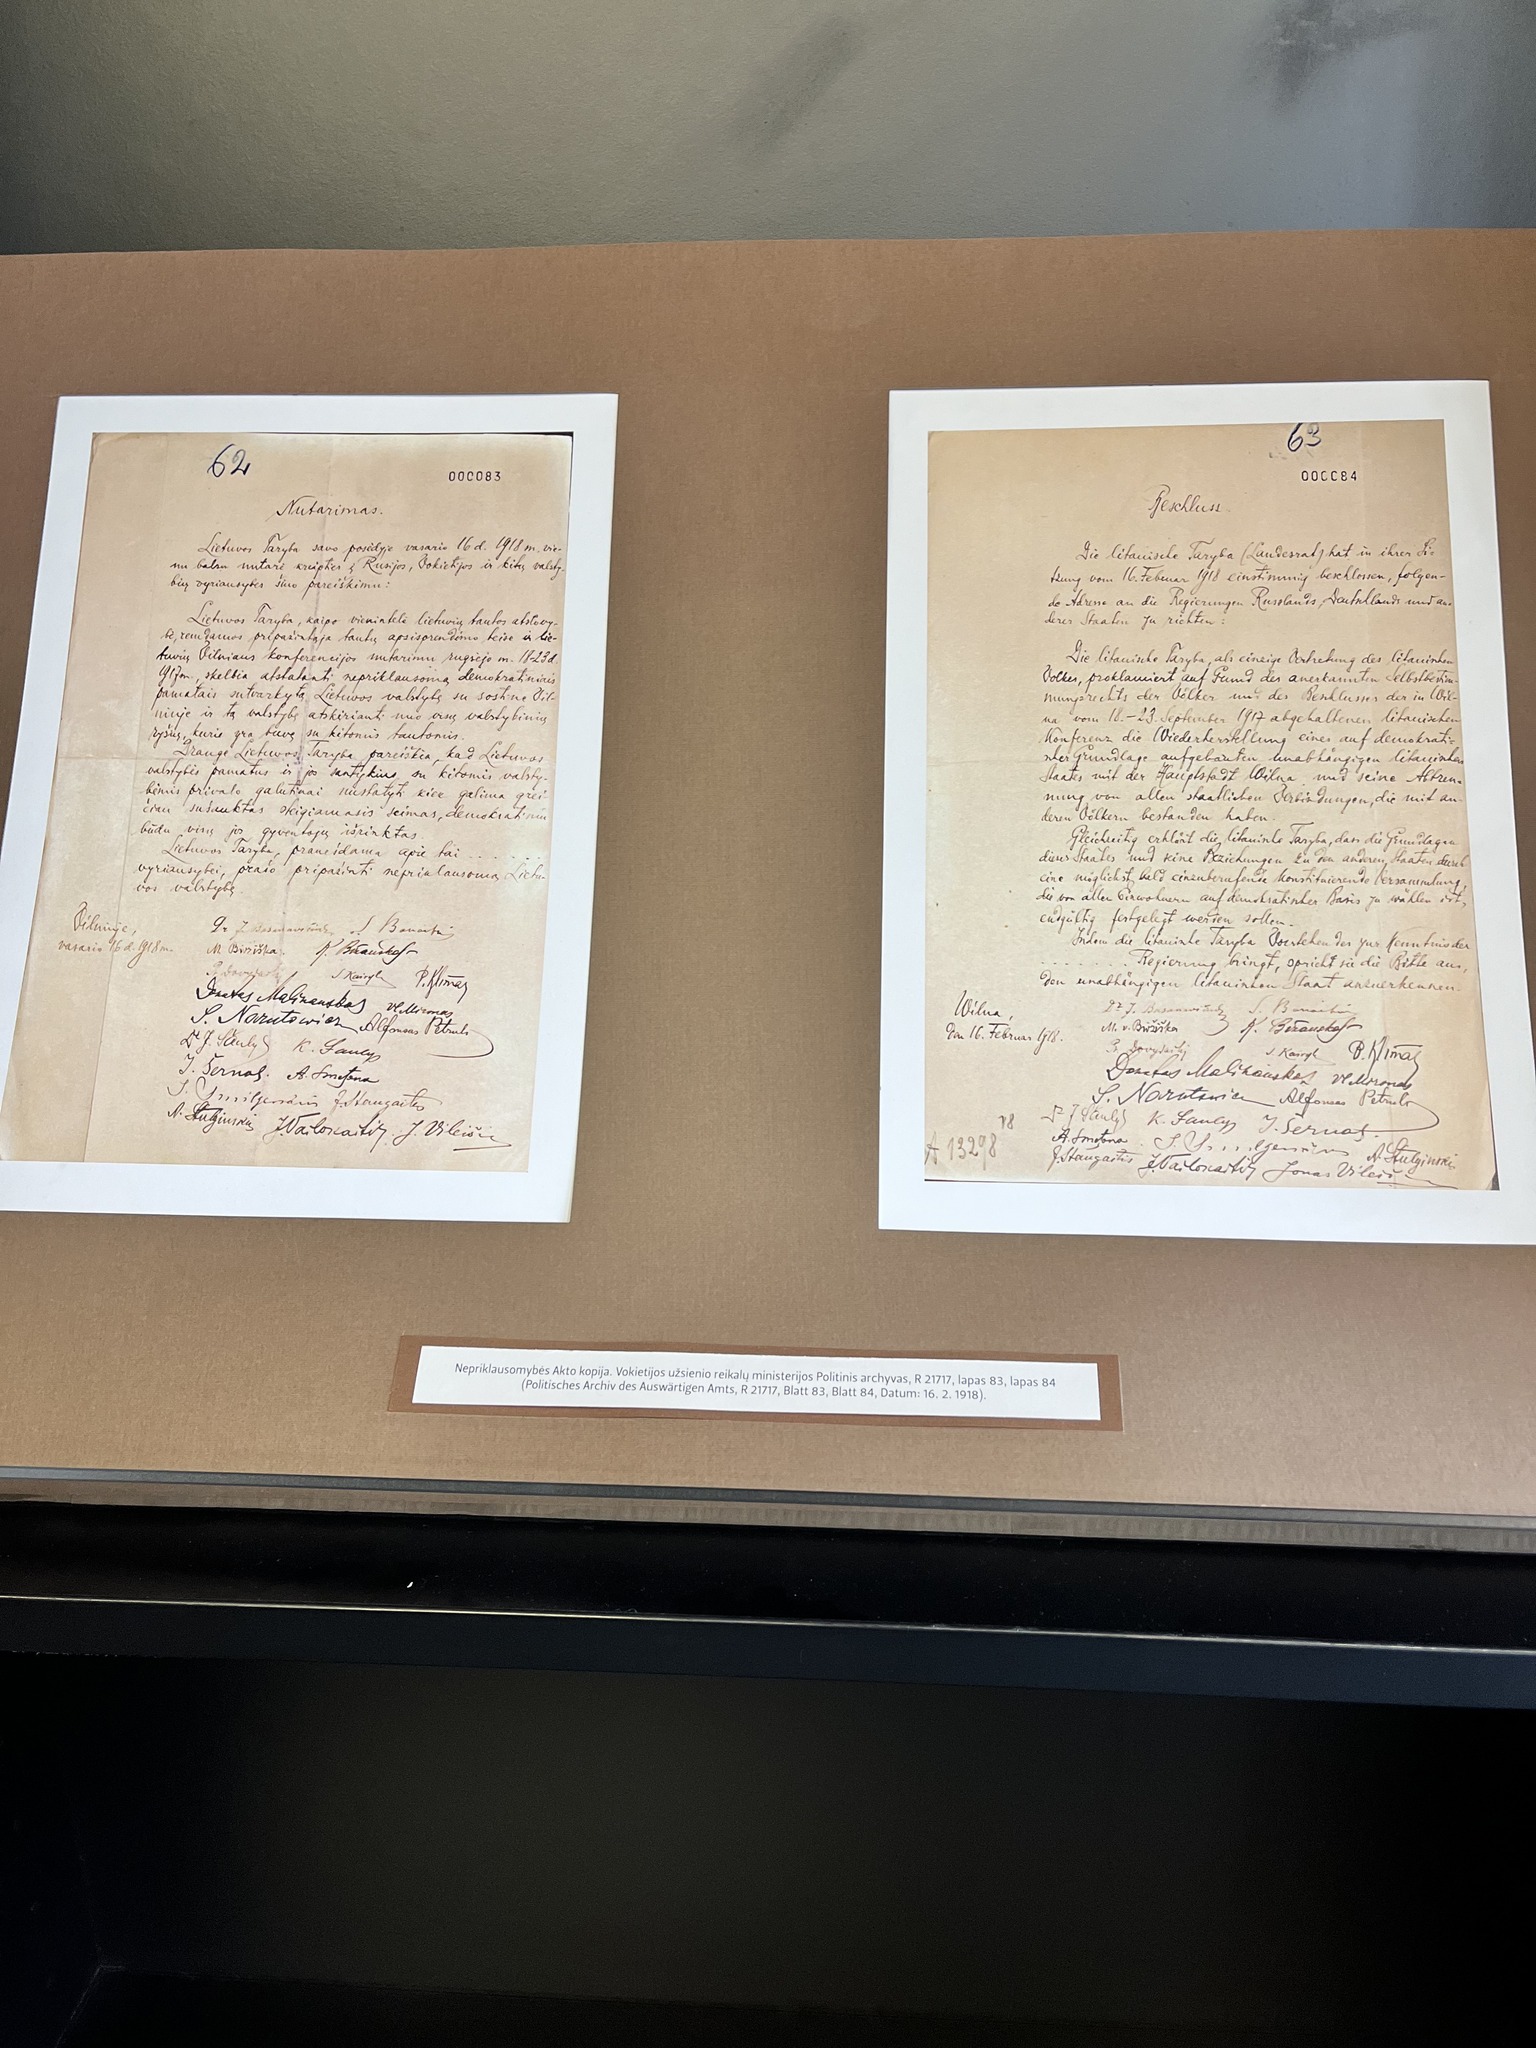 62
000083
Nutarimas.
Lietuvos Taryba savo posėdyje vasario 16 d. 1918 m. vie-
nu balsu nutarė kreiptis į Rusijos, Vokietijos ir kitų valsty-
bių vyriausybes šiuo pareiškimu:
Lietuvos Taryba, kaipo vienintelė lietuvių tautos atstovy-
bė, remdamos pripažintąja tautų apsisprendimo teise ir lie-
tuvių Vilniaus konferencijos nutarimu rugsėjo m. 18-23 d.
1917 m., skelbia atstatanti nepriklausomą demokratiniais
pamatais sutvarkytą Lietuvos valstybę su sostine Vil-
niuje ir tą valstybę atskirianti nuo visų valstybinių
ryšių, kurie yra buvę su kitomis tautomis.
Drauge Lietuvos Taryba pareiškia, kad Lietuvos
valstybės pamatus ir jos santykius su kitomis valsty-
bėmis privalo galutinai nustatyti kiek galima grei-
čiau sušauktas steigiamasis seimas, demokratiniu
būdu visų jos gyventojų išrinktas.
Lietuvos Taryba, pranešdama apie tai . . . . . .
vyriausybei, prašo pripažinti nepriklausomą Lietu-
vos valstybę.
Vilniuje,
vasario 16 d. 1918 m.
Dr J. Basanavičius S. Banaitis
M. Biržiška K. Bizauskas
Pr. Dovydaitis S. Kairys P. Klimas
Donatas Malinauskas Vl. Mironas
S. Narutowicz Alfonsas Petrulis
Dr J. Šaulys K. Šaulys
J. Šernas. A. Smetona
J. Smilgevičius J. Staugaitis
A. Stulginskis J. Vailokaitis, J. Vileišis
63
000084
Beschluss.
Die litauische Taryba (Landesrat) hat in ihrer Si-
tzung vom 16. Februar 1918 einstimmig beschlossen, folgen-
de Adresse an die Regierungen Russlands, Deutschlands und an-
derer Staaten zu richten:
Die litauische Taryba, als einzige Vertretung des litauischen
Volkes, proklamiert auf Grund des anerkannten Selbstbestim-
mungsrechts der Völker und des Beschlusses der in Wil-
na vom 18.-23. September 1917 abgehaltenen litauischen
Konferenz die Wiederherstellung eines auf demokrati-
scher Grundlage aufgebauten unabhängigen litauischen
Staates mit der Hauptstadt Wilna und seine Abtren-
nung von allen staatlichen Verbindungen, die mit an-
deren Völkern bestanden haben.
Gleichzeitig erklärt die litauische Taryba, dass die Grundlagen
dieses Staates und seine Beziehungen zu den anderen Staaten durch
eine möglichst bald einzuberufende konstituierende Versammlung,
die von allen Einwohnern auf demokratischer Basis zu wählen ist,
endgültig festgelegt werden sollen.
Indem die litauische Taryba Vorstehendes zur Kenntnis der
. . . . . . . Regierung bringt, spricht sie die Bitte aus,
den unabhängigen litauischen Staat anzuerkennen.
Wilna,
den 16. Februar 1918.
Dr J. Basanavičius S. Banaitis
M. v. Biržiška K. Bizauskas
Pr. Dovydaitis S. Kairys P. Klimas
Donatas Malinauskas Vl. Mironas
S. Narutowicz Alfonsas Petrulis
Dr J. Šaulys K. Šaulys J. Šernas.
A. Smetona J. Smilgevičius A. Stulginskis
J. Staugaitis J. Vailokaitis Jonas Vileišis
A 13298 18
Nepriklausomybės Akto kopija. Vokietijos užsienio reikalų ministerijos Politinis archyvas, R 21717, lapas 83, lapas 84
(Politisches Archiv des Auswärtigen Amts, R 21717, Blatt 83, Blatt 84, Datum: 16. 2. 1918).